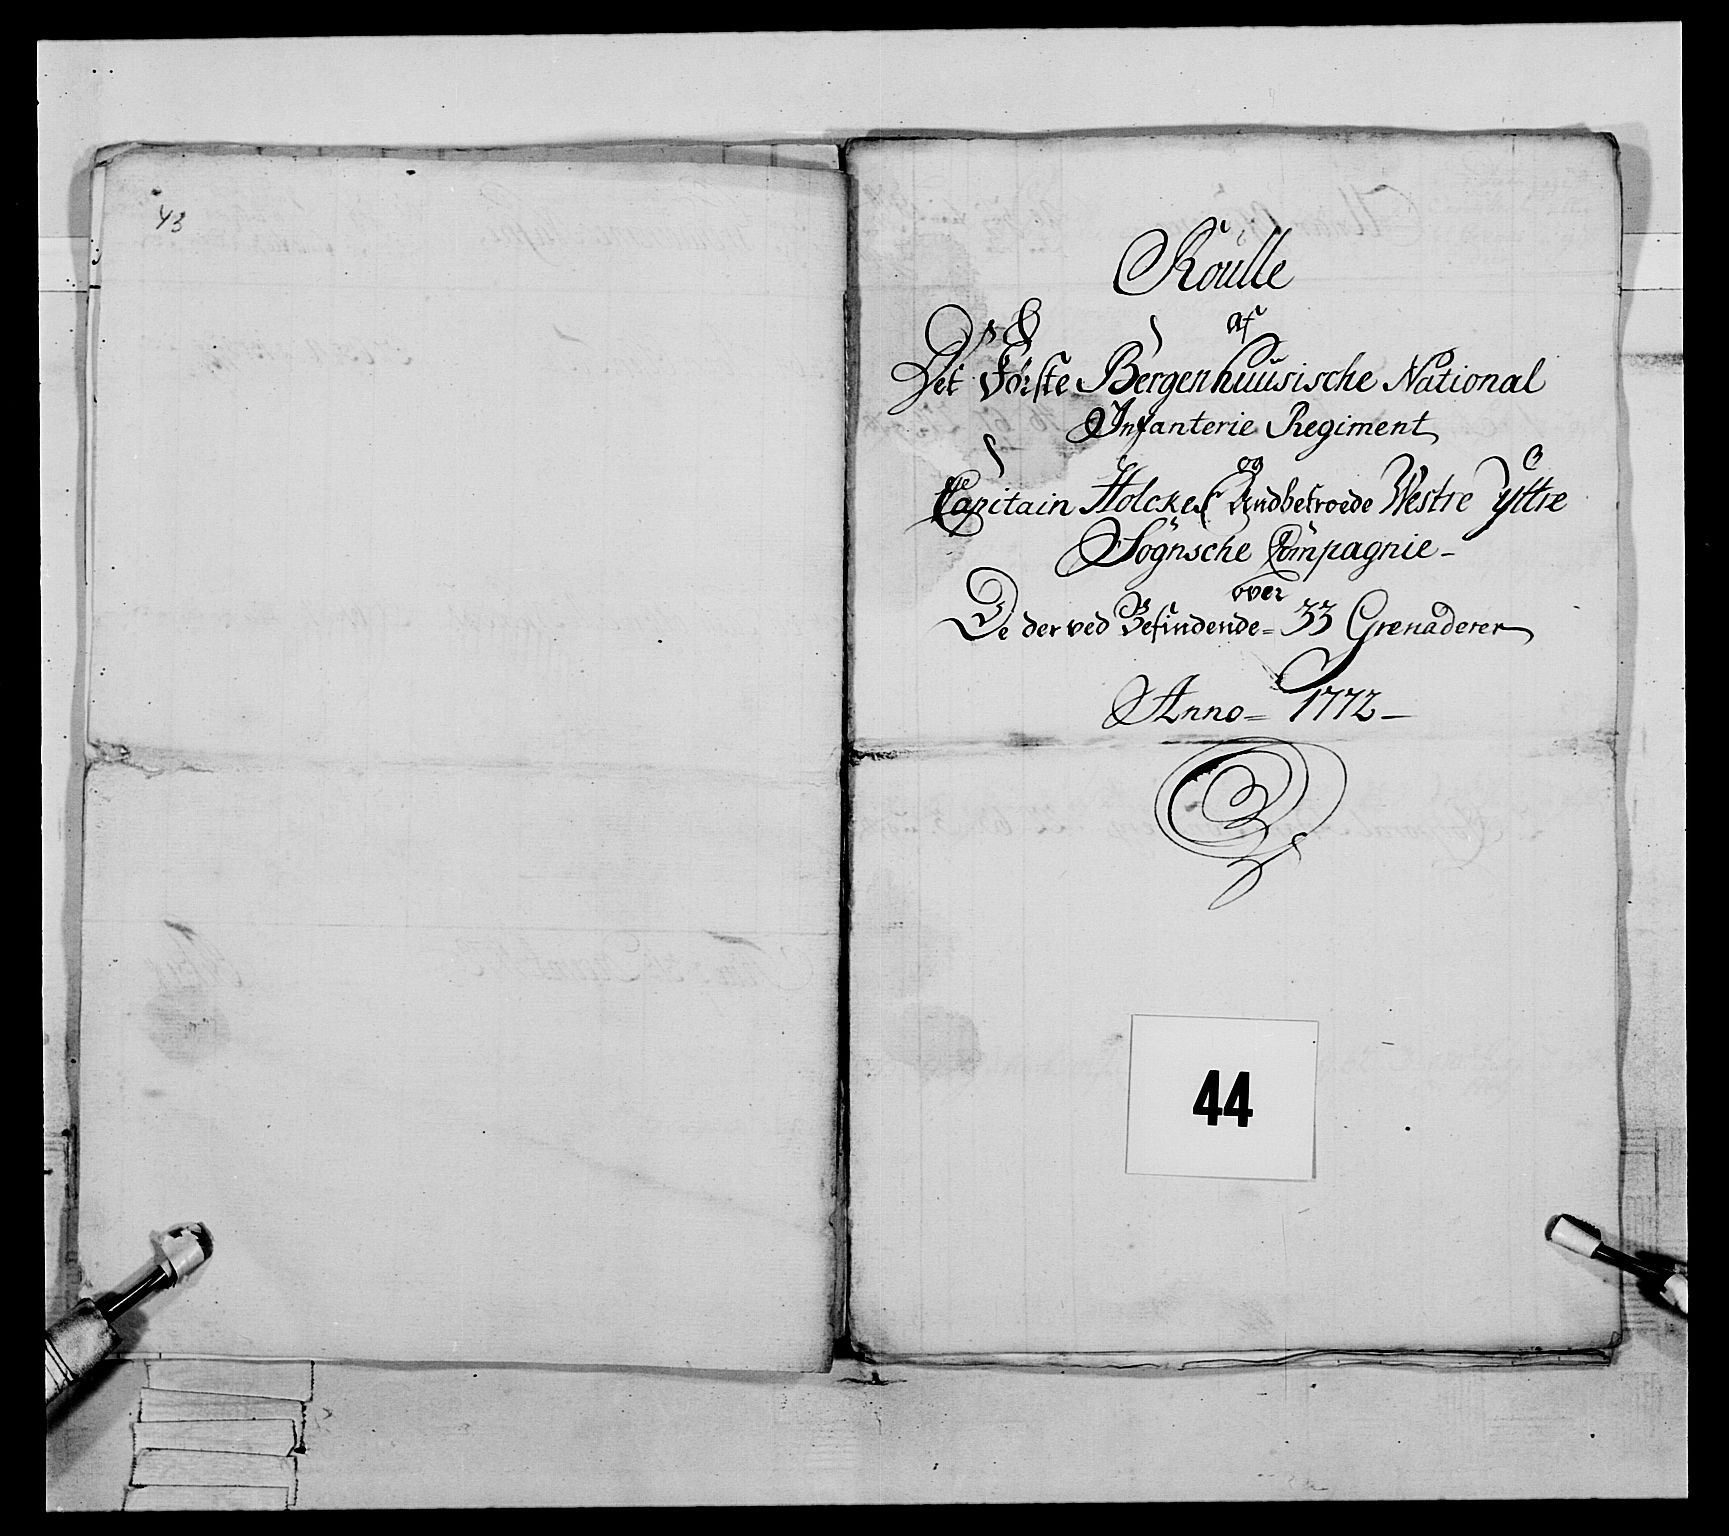 43
Roulle
af
Det Første Bergenhuusische National
Infanterie Regiment
og
Capitain Holckes Andbetroede Westre Yttre
Sognsche Compagnie-
over
De der ved Befindende= 33 Grenaderer
Anno= 1772-
44